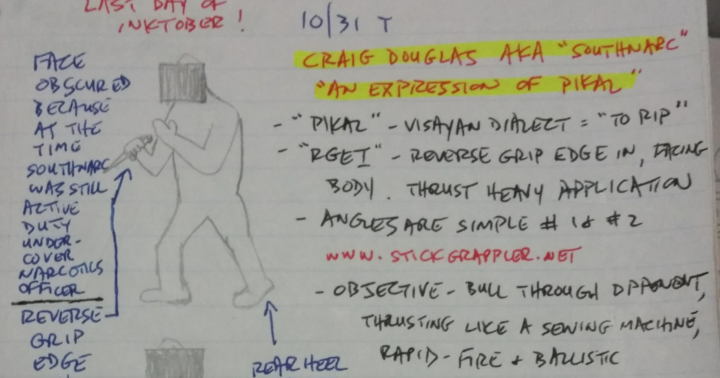 LAST DAY OF
INKTOBER!
10/31 T
CRAIG DOUGLAS AKA "SOUTHNARC"
"AN EXPRESSION OF PIKAL"
- "PIKAL" - VISAYAN DIALECT = "TO RIP"
- "RGEI" - REVERSE GRIP EDGE IN, FACING
BODY. THRUST HEAVY APPLICATION
- ANGLES ARE SIMPLE # 1 & # 2
WWW.STICKGRAPPLER.NET
- OBJECTIVE - BULL THROUGH OPPONENT,
THRUSTING LIKE A SEWING MACHINE,
RAPID-FIRE + BALLISTIC
FACE
OBSCURED
BECAUSE
AT THE
TIME
SOUTHNARC
WAS STILL
ACTIVE
DUTY
UNDER-
COVER
NARCOTICS
OFFICER
REVERSE
GRIP
EDGE
REAR HEEL